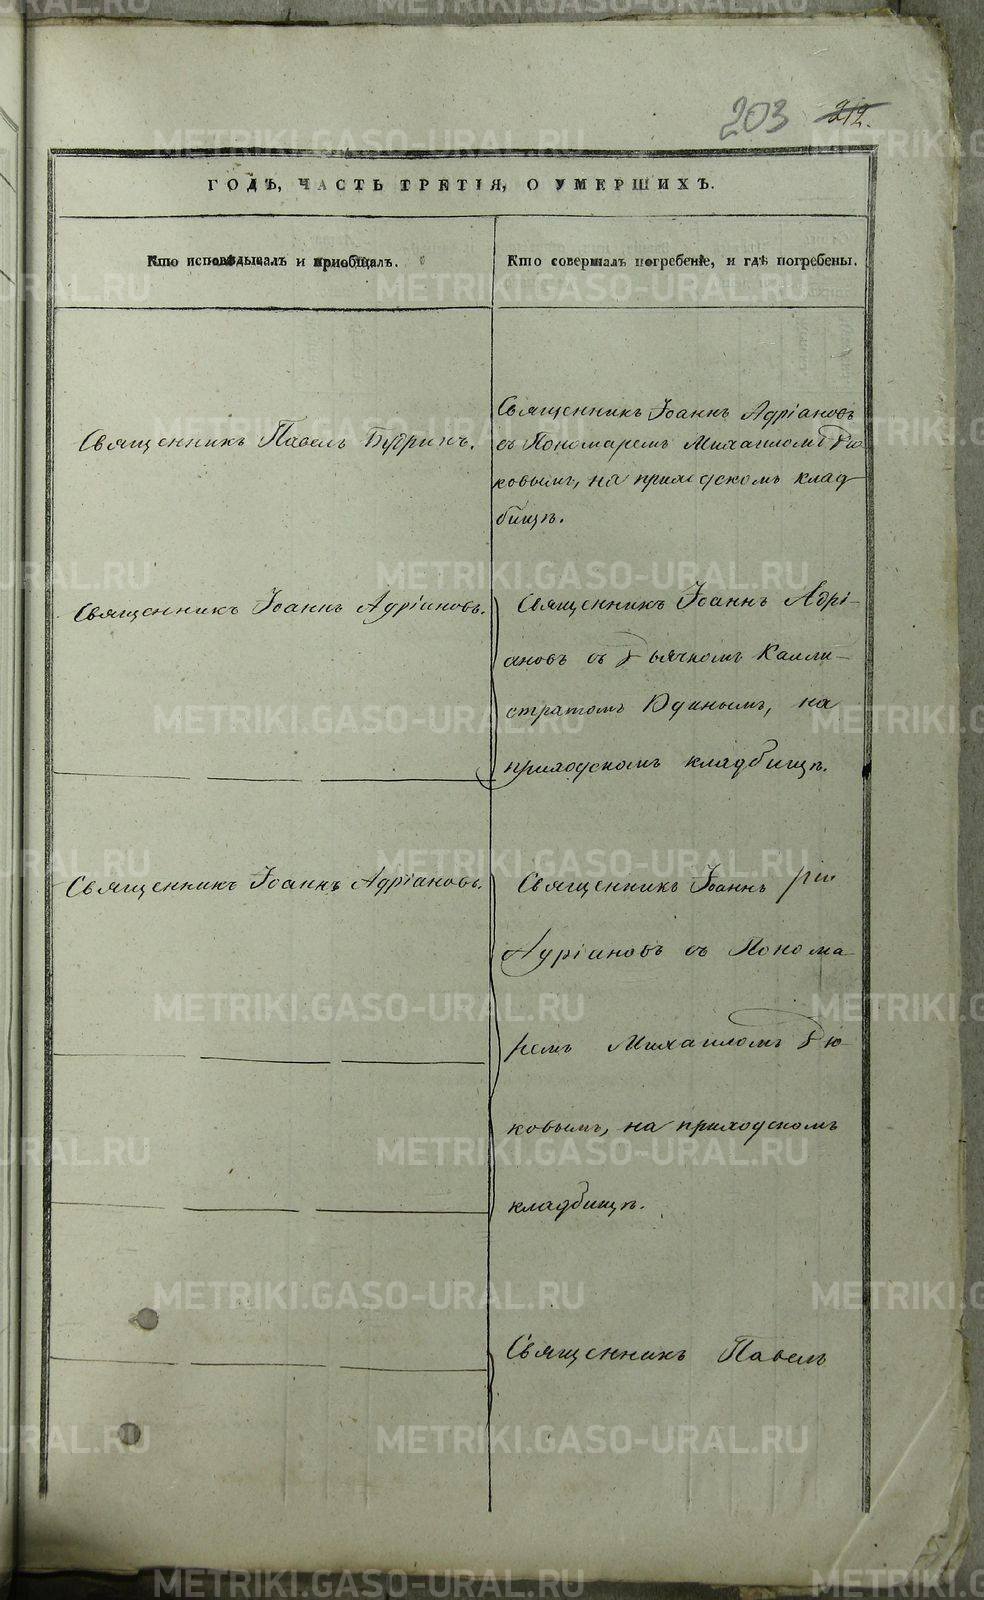 203 212.
ГОДЪ, ЧАСТЬ ТРЕТІЯ, О УМЕРШИХЪ.
Кто исповѣдывалъ и пріобщалъ.
Кто совершалъ погребеніе, и гдѣ погребены.
Священникъ Павелъ Бутринъ.
Священникъ Іоаннъ Адріановъ
съ Пономаремъ Михаиломъ Дю-
ковымъ, на приходскомъ клад
бищѣ.
Священникъ Іоаннъ Адріановъ.
Священникъ Іоаннъ Адрі-
ановъ съ Дьячкомъ Калли-
стратомъ Юдинымъ, на
приходскомъ кладбищѣ.
Священникъ Іоаннъ Адріановъ.
Священникъ Іоаннъ
Адріановъ съ Понома-
ремъ Михаиломъ Дю-
ковымъ, на приходскомъ
кладбищѣ.
Священникъ Павелъ
METRIKI.GASO-URAL.RU